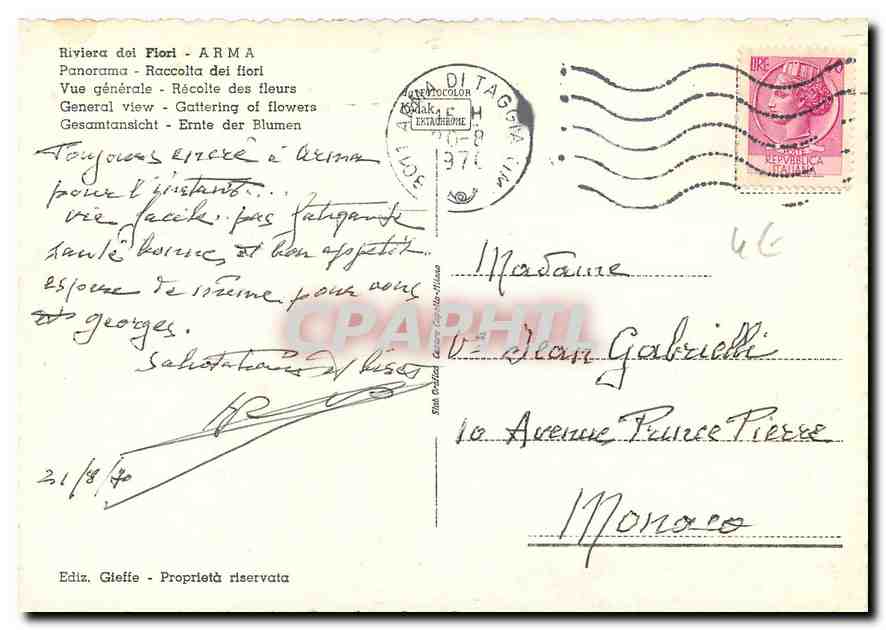 Riviera dei Fiori - ARMA
Panorama - Raccolta dei fiori
Vue générale - Récolte des fleurs
General view - Gattering of flowers
Gesamtansicht - Ernte der Blumen
FOTOCOLOR
Kodak
EKTACHROME
ARMA DI TAGGIA (IM
LIRE
POSTE
REPVBBLICA
ITALIANA
4€
Toujours encré à Arma
pour l'instant...
vie facile.. pas fatigante
santé bonne, et bon appétit.
espére de même pour vous
et Georges.
Salutations et bises
21/8/70
Madame
Ve Jean Gabrielli
10 Avenue Prince Pierre
Monaco
Stab. Grafico Cesare Capello - Milano
CPAPHIL
Ediz. Gieffe - Proprietà riservata